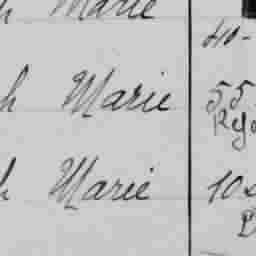 h Marie
40-
h Marie 55
Rg
h Marie 10